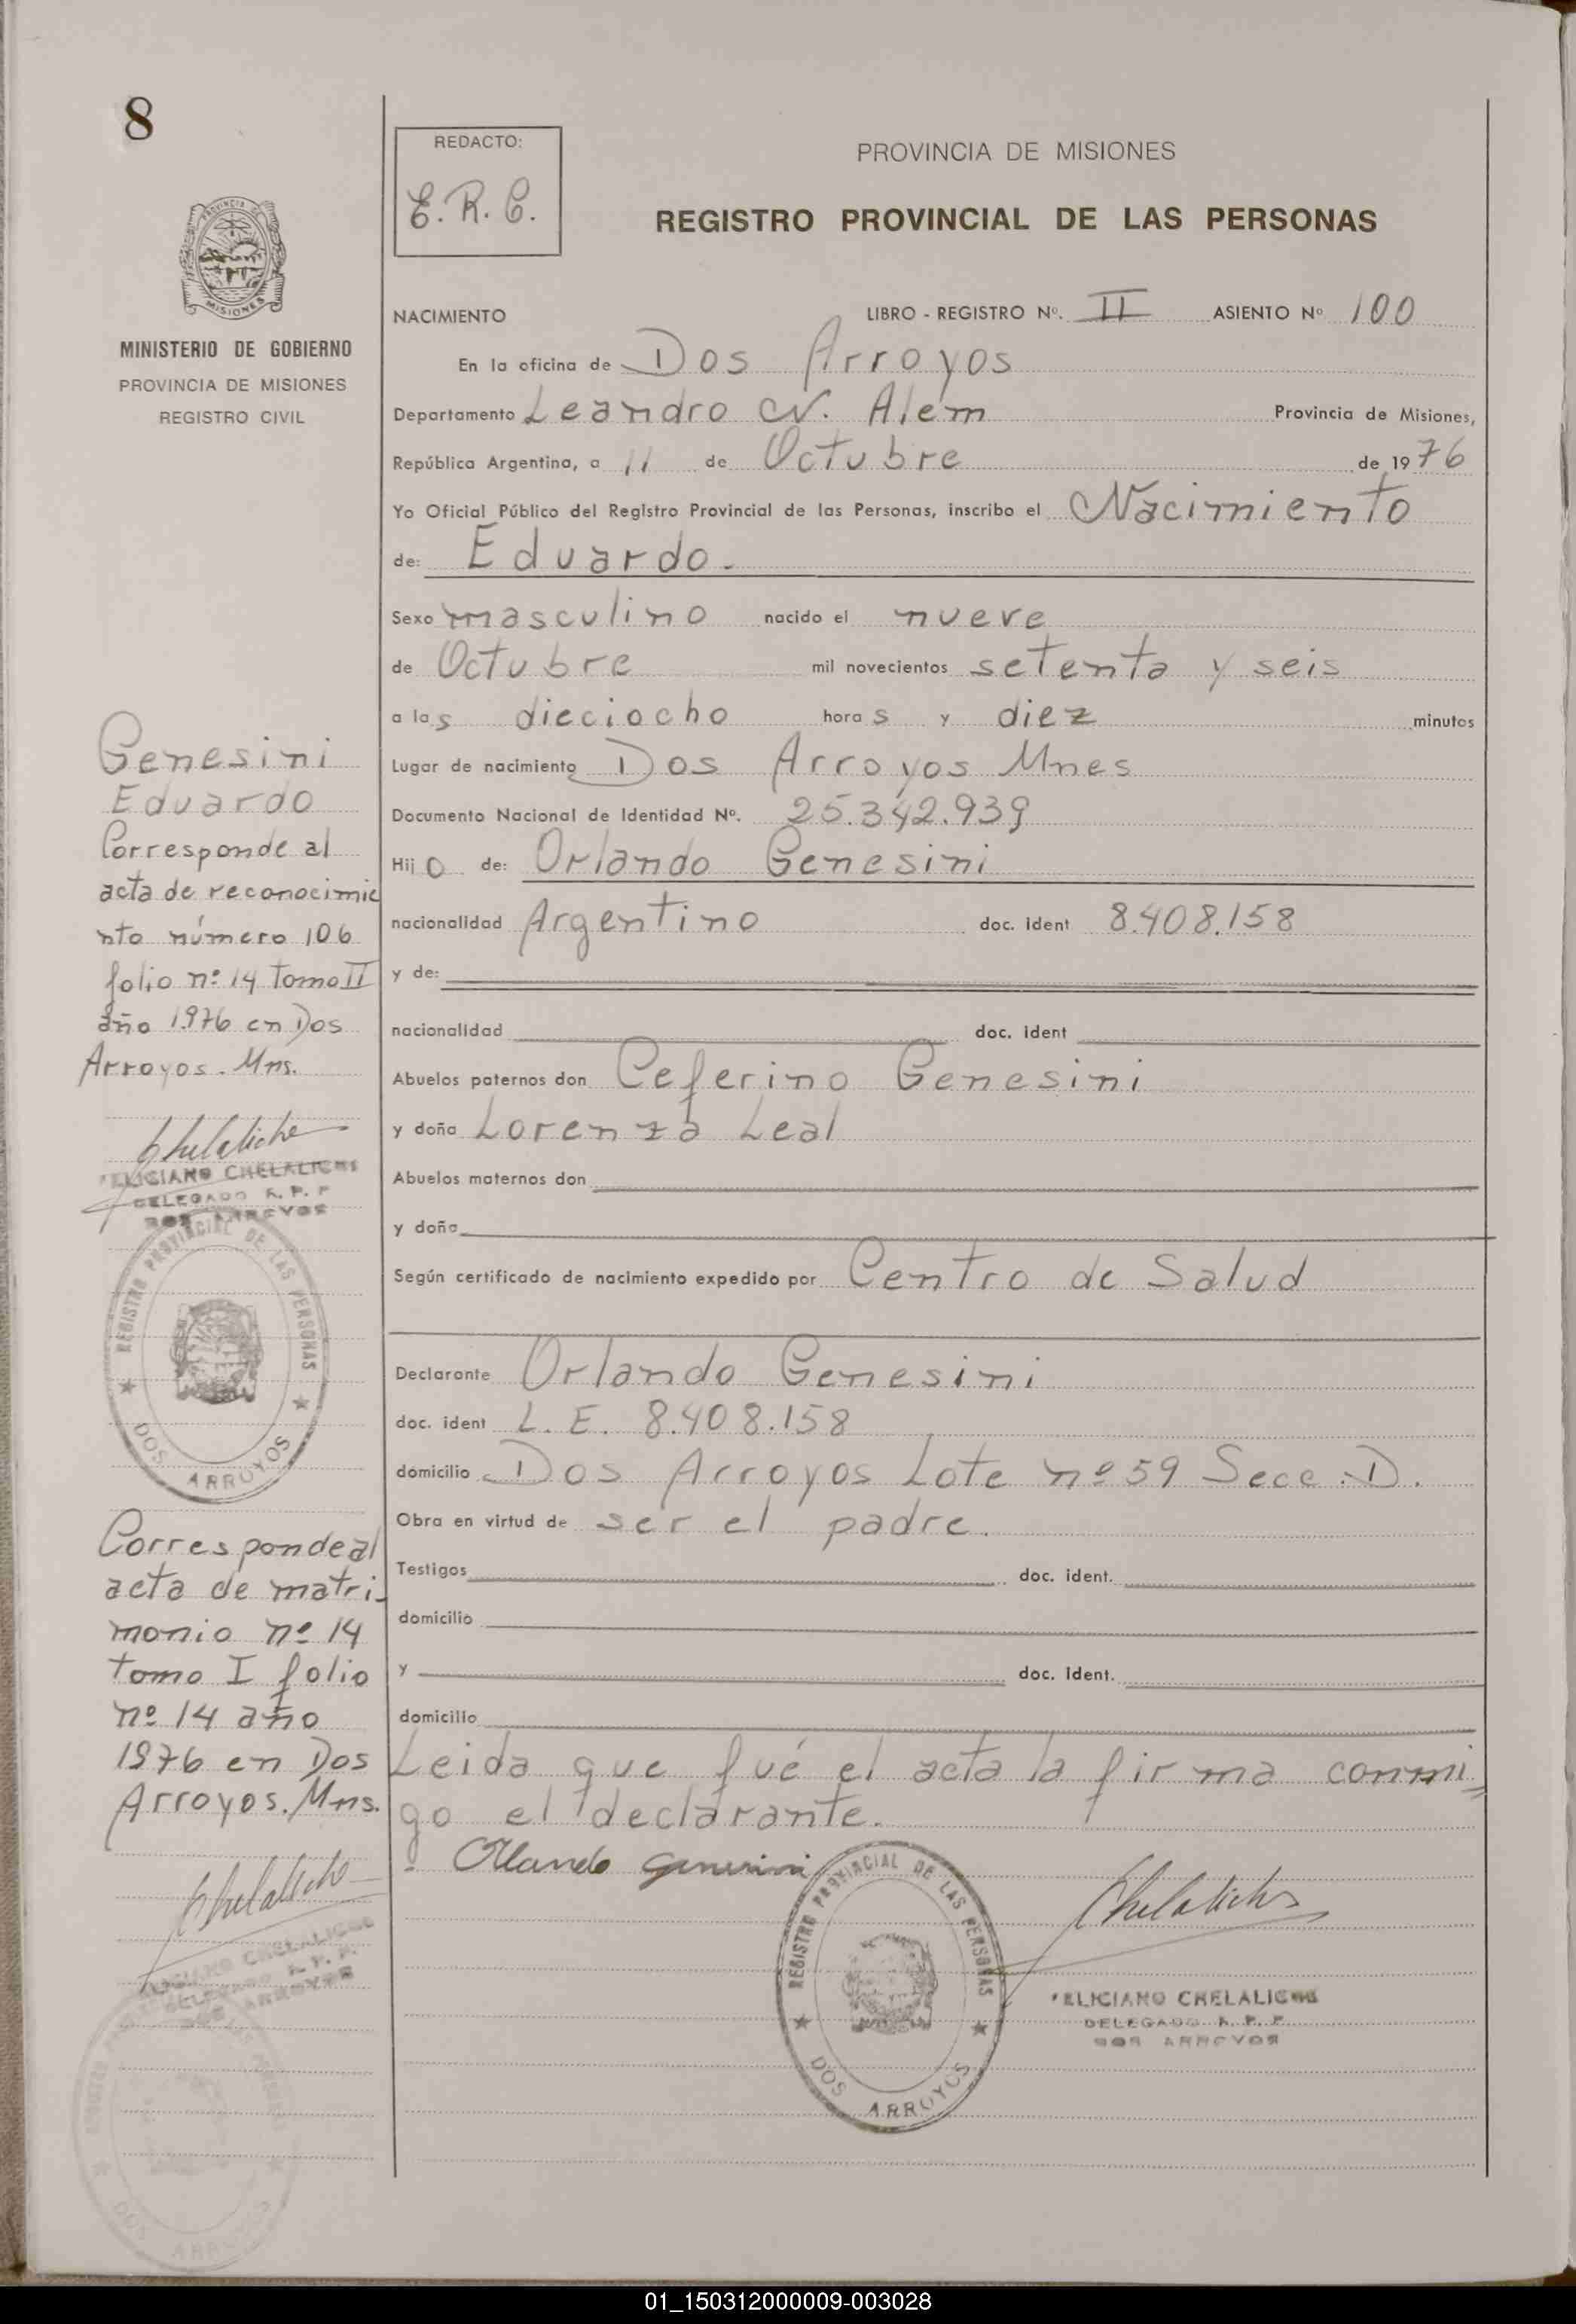 8
MINISTERIO DE GOBIERNO
PROVINCIA DE MISIONES
REGISTRO CIVIL
Genesini
Eduardo
Corresponde al
acta de reconocimie
nto número 106
folio nº 14 Tomo II
año 1976 en Dos
Arroyos. Mns.
FELICIANO CHELALICHE
DELEGADO R. P. P
DOS ARROYOS
REGISTRO PROVINCIAL DE LAS PERSONAS
DOS ARROYOS
Corresponde al
acta de matri-
monio nº 14
tomo I folio
nº 14 año
1976 en Dos
Arroyos. Mns.
CHELALICHE
DELEGADO R. P. P.
DOS ARROYOS
REDACTO:
E. R. C.
PROVINCIA DE MISIONES
REGISTRO PROVINCIAL DE LAS PERSONAS
NACIMIENTO LIBRO - REGISTRO Nº. II ASIENTO Nº 100
En la oficina de Dos Arroyos
Departamento Leandro N. Alem Provincia de Misiones,
República Argentina, a 11 de Octubre de 1976
Yo Oficial Público del Registro Provincial de las Personas, inscribo el Nacimiento
de: Eduardo.
Sexo masculino nacido el nueve
de Octubre mil novecientos setenta y seis
a las dieciocho horas y diez minutos
Lugar de nacimiento Dos Arroyos Mnes
Documento Nacional de Identidad Nº. 25.342.939
Hijo de: Orlando Genesini
nacionalidad Argentino doc. ident 8.408.158
y de:
nacionalidad doc. ident
Abuelos paternos don Ceferino Genesini
y doña Lorenza Leal
Abuelos maternos don
y doña
Según certificado de nacimiento expedido por Centro de Salud
Declarante Orlando Genesini
doc. ident L. E. 8.408.158
domicilio Dos Arroyos Lote nº 59 Secc. D.
Obra en virtud de ser el padre.
Testigos doc. ident.
domicilio
y doc. ident.
domicilio
Leida que fué el acta la firma conmi=
go el declarante.
Orlando Genesini
REGISTRO PROVINCIAL DE LAS PERSONAS
DOS ARROYOS
FELICIANO CHELALICHE
DELEGADO R. P. P
DOS ARROYOS
01_150312000009-003028